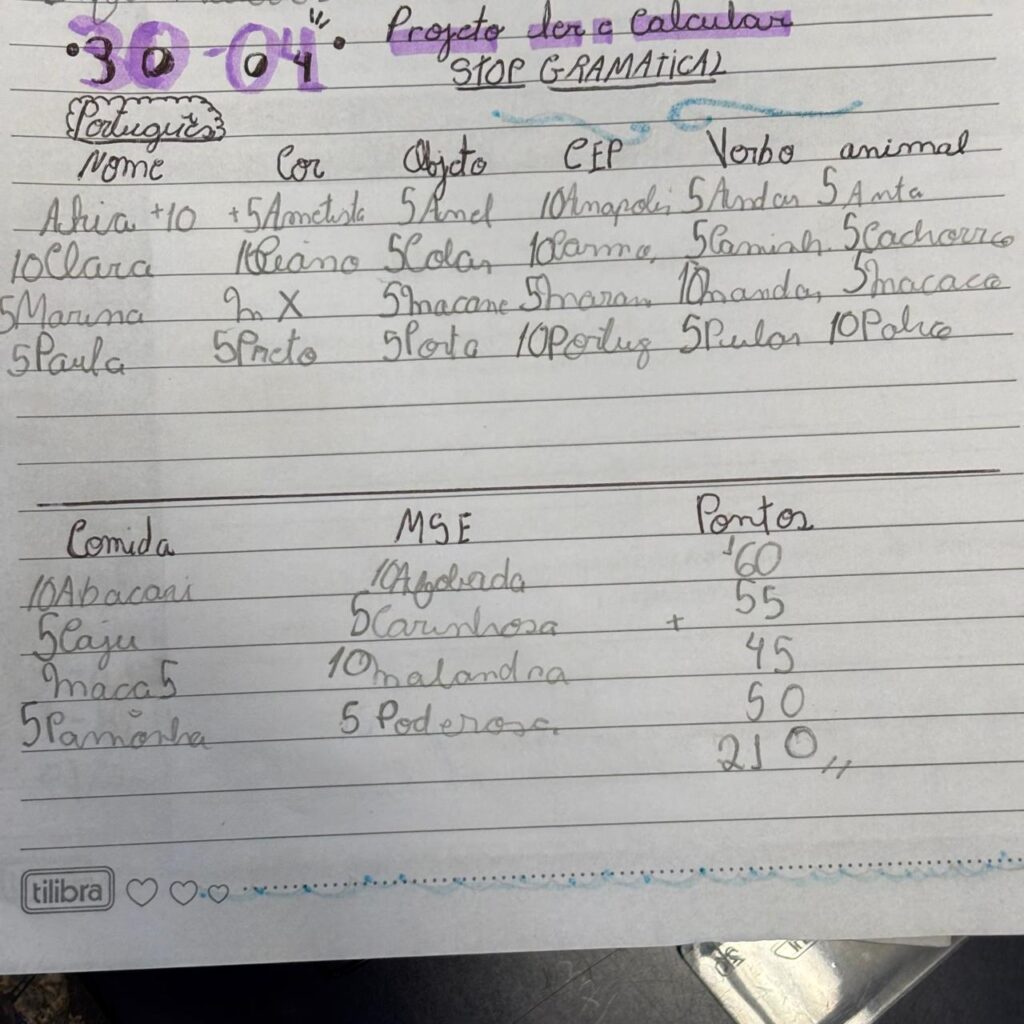 30-04 Projeto Ler e Calcular
STOP GRAMATICAL
Português
Nome Cor Objeto CEP Verbo animal
+10 +5Ametista 5Anel 10Anapoli 5Andar 5Anta
10Clara 10Ciano 5Colar 10 5Caminh 5Cachorro
5Marina m X 5 5maran 10mandar 5macaco
5Paula 5Preto 5Porta 10Portug 5Pular 10
Comida MSE Pontos
10Abacaxi 60
5Caju 5Carinhosa 55
maca5 10malandra + 45
5Pamonha 5 Poderosa 50
210
tilibra